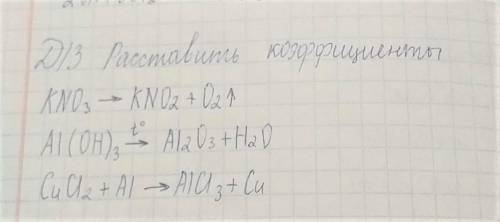 Д/З Расставить коэффициенты
KNO₃ → KNO₂ + O₂↑
Al(OH)₃ t°→ Al₂O₃ + H₂O
CuCl₂ + Al → AlCl₃ + Cu